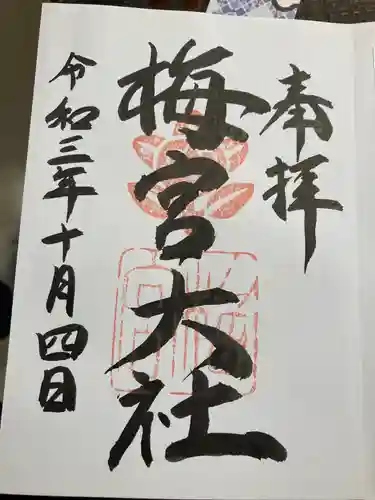 奉拝
梅宮大社
令和三年十月四日